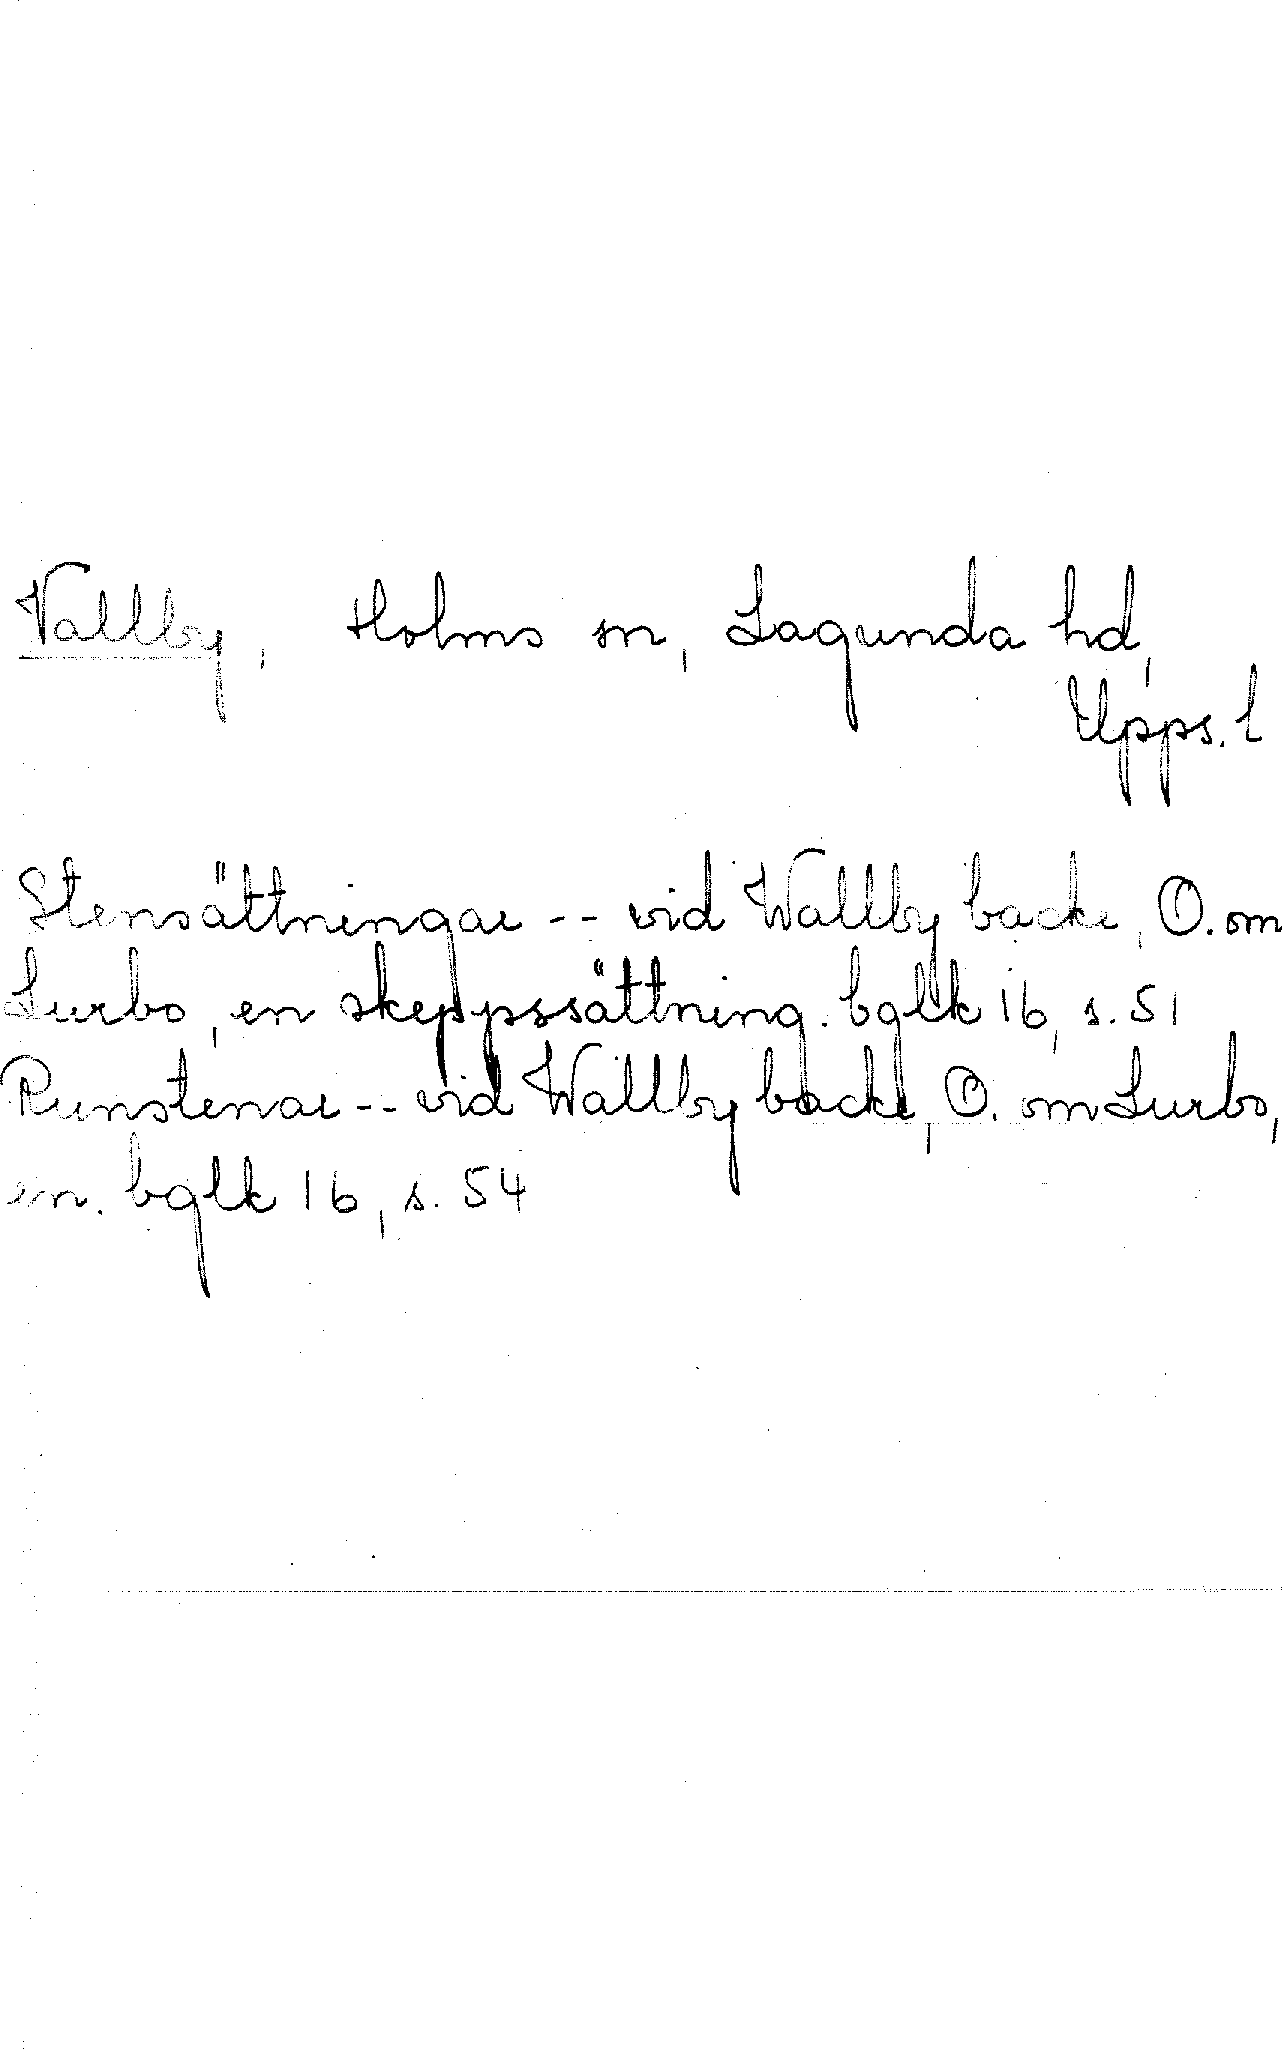 Vallby, Holms sn, Lagunda hd,
Upps. l
Stensättningar -- vid Wallby backe, O. om
Lurbo, en skeppssättning. bglk 16, s. 51
Runstenar -- vid Wallby backe, O. om Lurbo,
en. bglk 16, s. 54